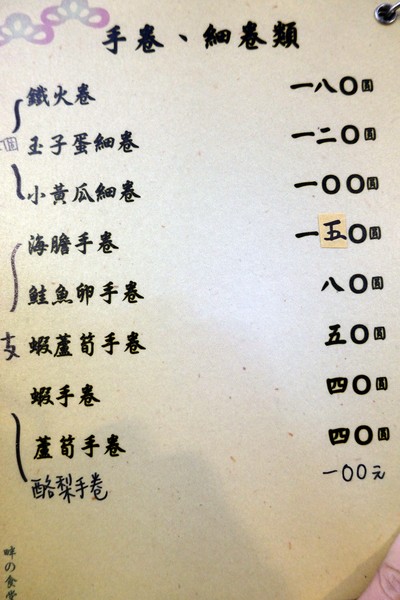 手卷、細卷類
鐵火卷 一八〇圓
玉子蛋細卷 一二〇圓
小黃瓜細卷 一〇〇圓
海膽手卷 一五〇圓
鮭魚卵手卷 八〇圓
蝦蘆荀手卷 五〇圓
蝦手卷 四〇圓
蘆荀手卷 四〇圓
酪梨手卷 一00元
個
支
畔の食堂